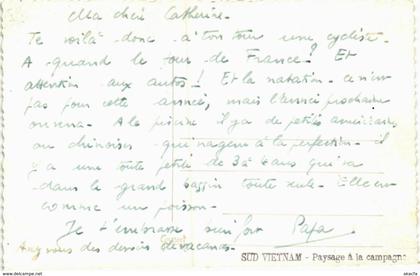 Ma chère Catherine.
Te voilà donc à ton tour une cycliste.
A quand le tour de France? Et
attention aux autos! Et la natation. ce n'est
pas pour cette année, mais l'année prochaine
on verra. A la piscine il y a de petits américains
ou chinoises qui nagent à la perfection. il
y a une toute petite de 3 à 4 ans qui va
dans le grand bassin toute seule. Elle
comme un poisson.
Je t'embrasse bien fort Papa
des dessins de vacances.
SUD VIETNAM - Paysage à la campagne